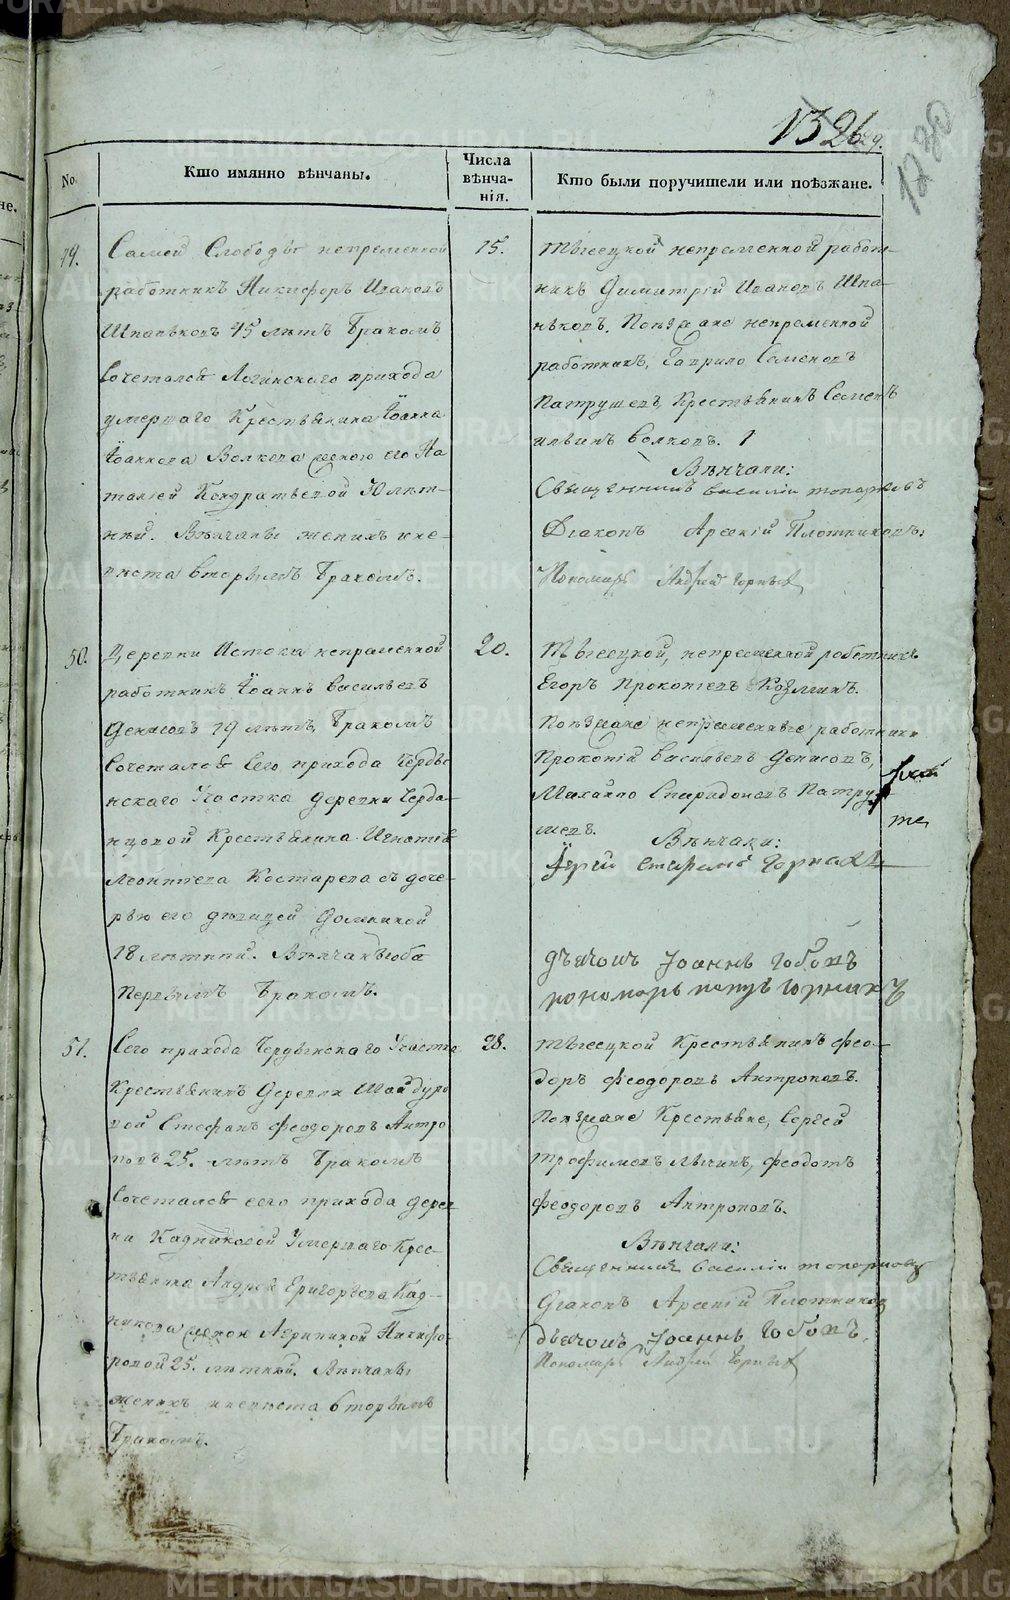 13
26
1230
No.
Кто имянно вѣнчаны.
Числа
вѣнча-
нія.
Кто были поручители или поѣзжане.
Самой Слободы непременной
работникъ Никифоръ Ивановъ
Шпаньковъ 45 лѣтъ Бракомъ
Сочетался Логинскаго прихода
умершаго Крестьянина Іоанна
Іоаннова Волкова женою его На
таліей Кондратьевой 30 лѣт-
ней. Вѣнчаны женихъ и не-
вѣста вторымъ Бракомъ.
15.
Тысецкой непременной работ-
никъ Димитрій Ивановъ Шпа-
ньковъ. Поѣзжане непременной
работникъ, Гаврило Семеновъ
Патрушевъ, Крестьянинъ Семенъ
Волковъ.
Вѣнчали:
Священникъ Василій Топорковъ
Діаконъ Арсеній Плотниковъ:
Пономарь Андрей Горныхъ
50.
Деревни Истока непременной
работникъ Іоаннъ Васильевъ
Денисовъ 19 лѣтъ, Бракомъ
Сочетался Сего прихода Черды-
нскаго Участка деревни Черда-
нцовой Крестьянина Игнатія
Леонтіева Костарева съ доче-
рью его дѣвицей Домникой
18 лѣтней. Вѣнчаны оба
Первымъ Бракомъ.
20.
Тысецкой, непременной работникъ
Егоръ Прокопіевъ Козлихинъ.
Поѣзжане непременные работники
Прокопій Васильевъ Денисовъ,
Михайло Спиридоновъ Патру-
шевъ.
Вѣнчали:
Іерей Стефанъ Горныхъ
дьячокъ Іоаннъ Гобовъ
пономарь Горныхъ
51.
Сего прихода Чердынскаго Участка
Крестьянинъ Деревни Шайдуро
вой Стефанъ Феодоровъ Антро
повъ 25. лѣтъ Бракомъ
Сочетался сего прихода дерев
ни Кадниковой Умершаго Крес-
тьянина Андрея Григорьева Кад-
никова женою Агрипиной Никифо-
ровой 25. лѣтней. Вѣнчаны
женихъ и невѣста вторымъ
Бракомъ.
28.
Тысецкой Крестьянинъ Фео-
доръ Феодоровъ Антроповъ.
Поѣзжане Крестьяне, Сергей
Трофимовъ Лычинъ, Феодотъ
Феодоровъ Антроповъ.
Вѣнчали:
Священникъ Василій Топорковъ
Діаконъ Арсеній Плотниковъ
дьячокъ Іоаннъ Гобовъ.
Пономарь Андрей Горныхъ
METRIKI.GASO-URAL.RU